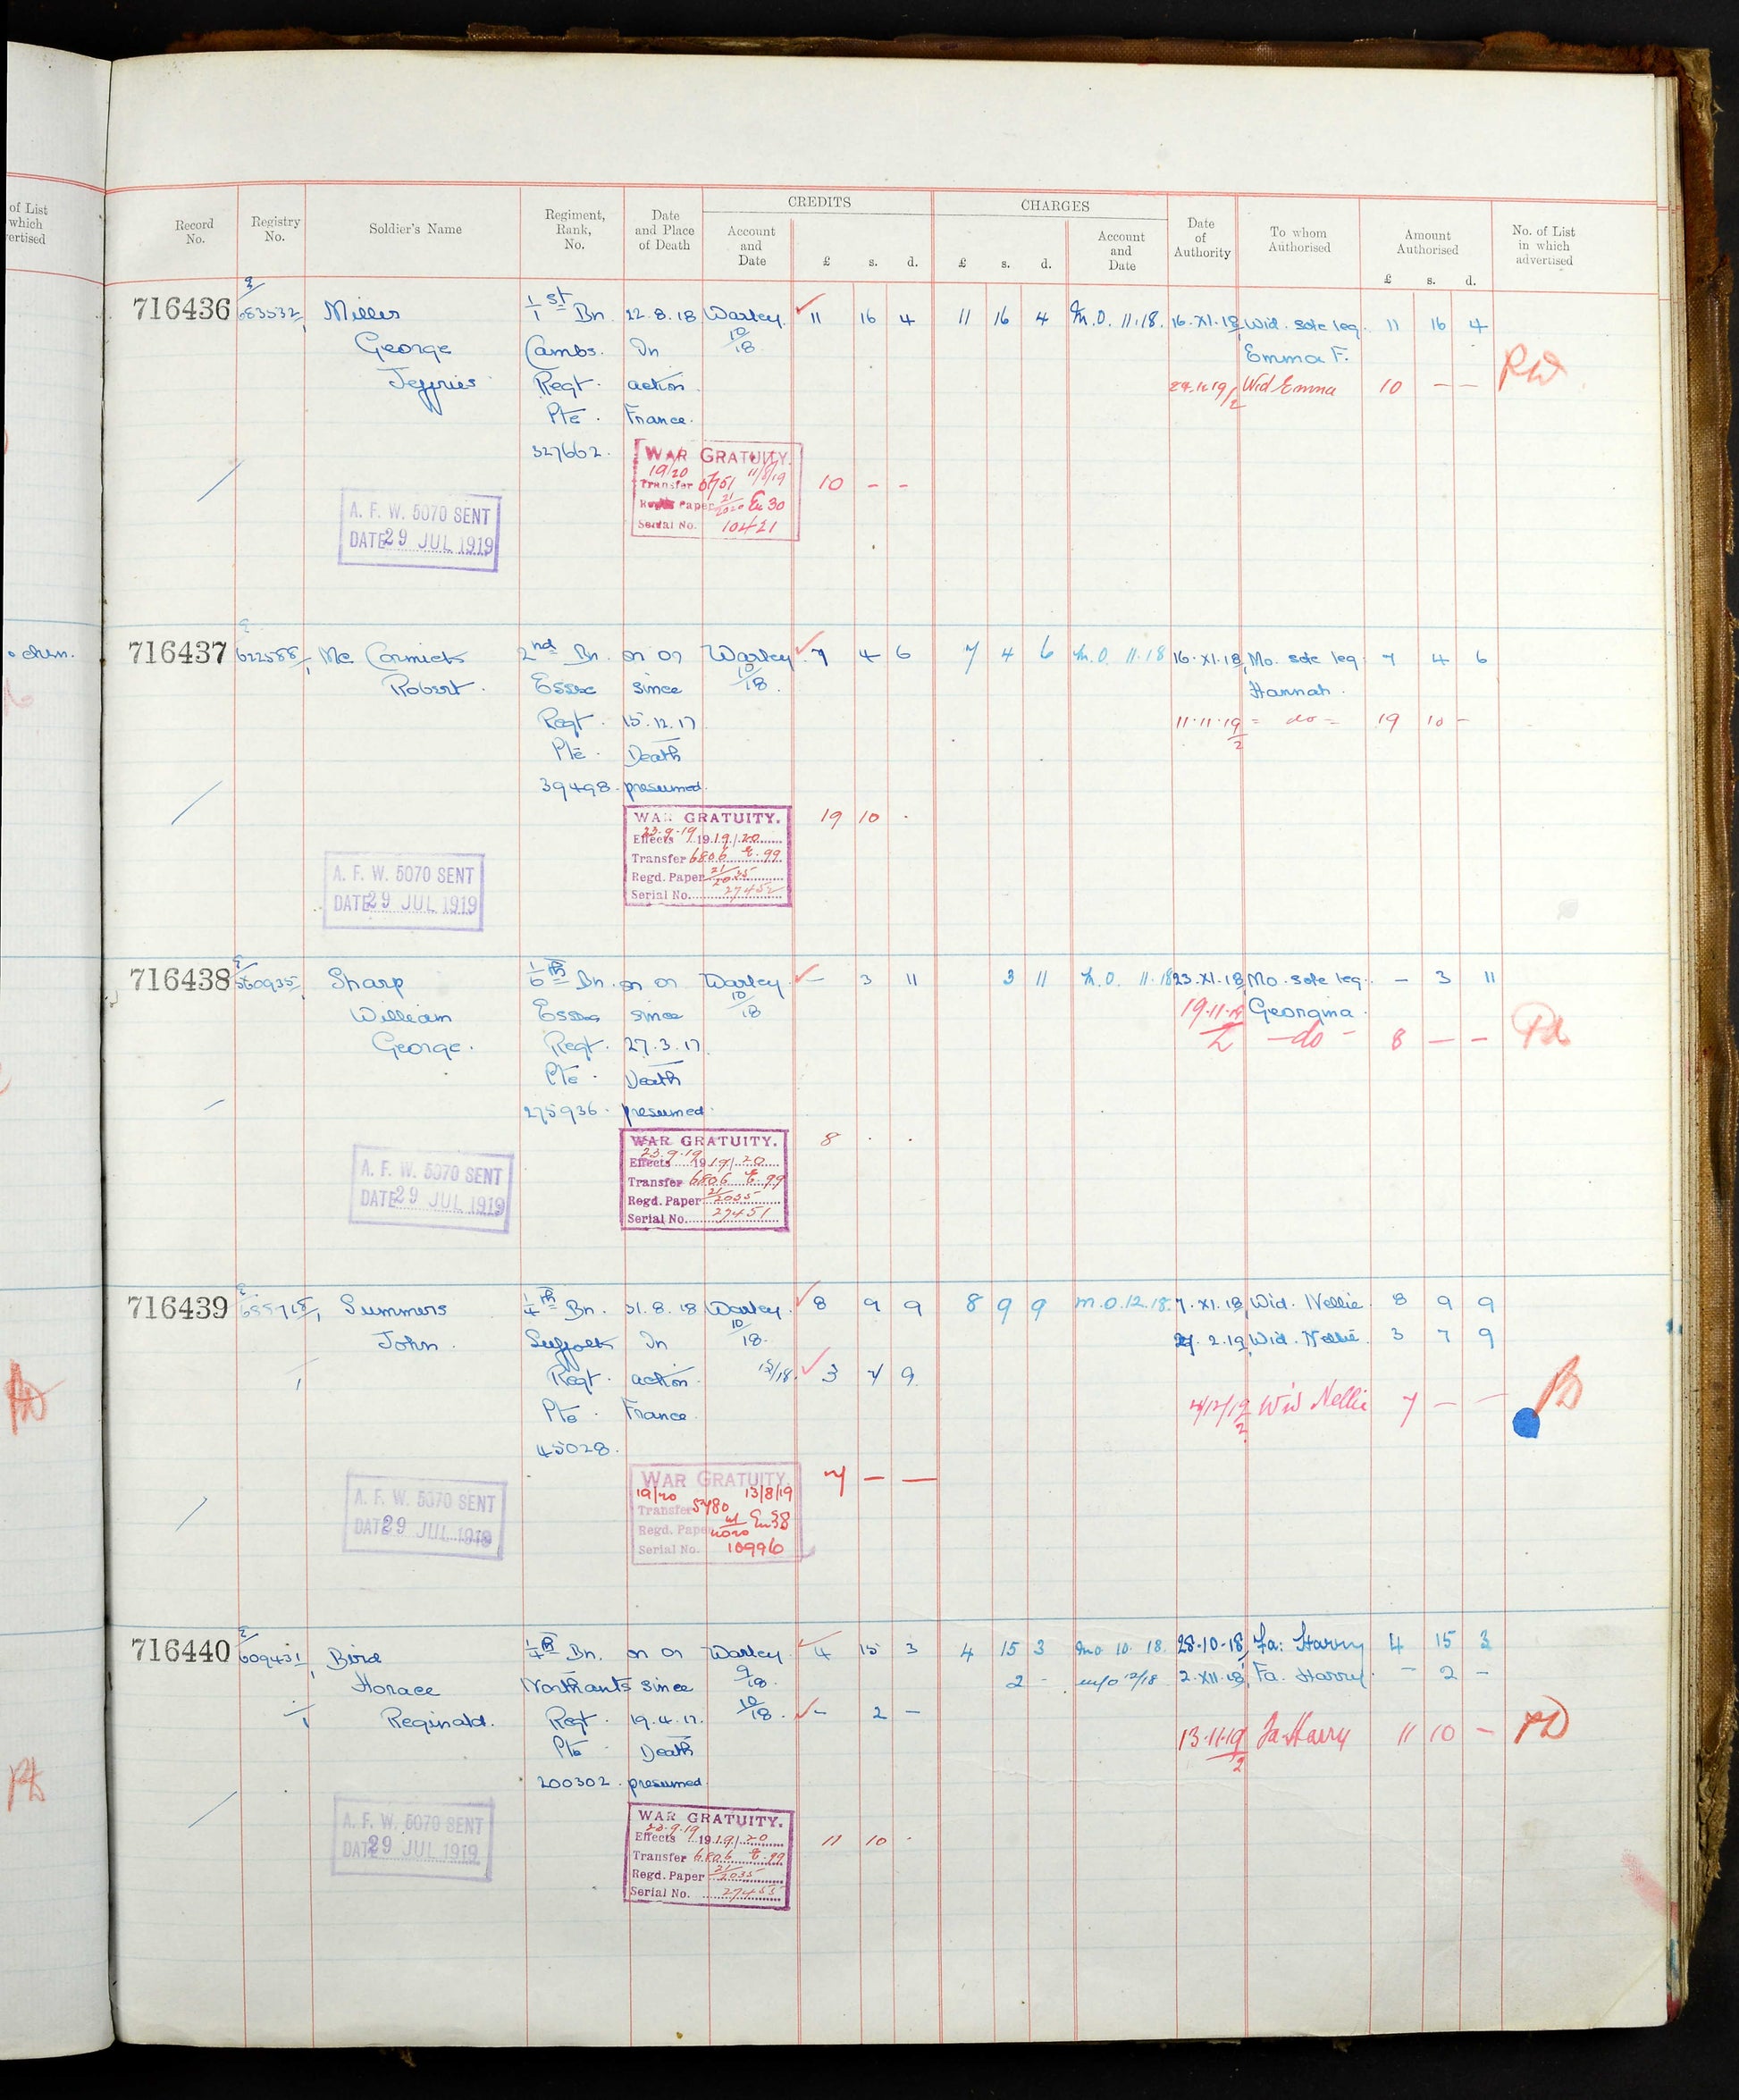 of List
which
ertised
CREDITS CHARGES
Record No. Registry No. Soldier's Name Regiment, Rank, No. Date and Place of Death Account and Date £ s. d. £ s. d. Account and Date Date of Authority To whom Authorised Amount Authorised £ s. d. No. of List in which advertised
716436 Miller 1/1st Bn. 22.8.18 Warley 11 16 4 11 16 4 M.O. 11.18. 16.XI.18 Wid. sole leg. 11 16 4
George Cambs. In 10/18 Emma F.
Jeffries Regt. action 10 — — RW
Wid Emma
Pte. France.
327662. WAR GRATUITY.
19/20 11/8/19
Transfer 10 - -
Regd. Paper 21/2020 30
Serial No. 10421
A. F. W. 5070 SENT
DATE 29 JUL 1919
o chen.
716437 622588/1 Mc Cormick 2nd Bn. on or Warley 7 4 6 7 4 6 M.O. 11.18 16.XI.18 Mo. sole leg. 7 4 6
Robert. Essex since 10/18. Hannah.
Regt. 15.12.17 11.11.19/2 = do = 19 10 -
Pte. Death
39498. presumed.
WAR GRATUITY. 19 10 .
23.9.19
Effects 1919/20
Transfer 6806 E.99
Regd. Paper 21/2035
Serial No. 27452
A. F. W. 5070 SENT
DATE 29 JUL 1919
716438 560935/1 Sharp 1/6th Bn. on or Warley — 3 11 3 11 M.O. 11.18 23.XI.18 Mo. sole leg. — 3 11
William Essex since 10/18 19.11.19/2 Georgina.
George. Regt. 27.3.17. —do— 8 — —
Pte. Death
275936. presumed.
WAR GRATUITY. 8 . .
23.9.19
Effects 1919/20
Transfer 6806 E.99
Regd. Paper 21/2035
Serial No. 27451
A. F. W. 5070 SENT
DATE 29 JUL 1919
716439 Summers 1/4th Bn. 31.8.18 Warley. 8 9 9 8 9 9 M.O.12.18. 7.XI.18 Wid. Nellie. 8 9 9
John. Suffolk In 10/18. 2.19 Wid. Nellie. 3 7 9
Regt. action. 12/18. 3 7 9
Pte. France. Wid Nellie 7 — —
45028.
WAR GRATUITY. 7 — —
19/20 13/8/19
Transfer 5780
Regd. Paper
Serial No. 10996
A. F. W. 5070 SENT
DATE 29 JUL 1919
716440 609431/1 Bird 1/4th Bn. on or Warley 4 15 3 4 15 3 mo 10.18. 28.10.18 Fa: Harry 4 15 3
Horace Northants since 9/18. 2 - m/o 12/18 2.XII.18 Fa. Harry. - 2 -
Reginald. Regt. 19.4.17. 10/18. — 2 —
13.11.19/2 Fa Harry 11 10 —
Pte. Death
200302. presumed.
WAR GRATUITY.
23.9.19
Effects 1919/20 11 10 .
Transfer 6806 E.99
Regd. Paper 21/2035
Serial No. 27453
A. F. W. 5070 SENT
DATE 29 JUL 1919